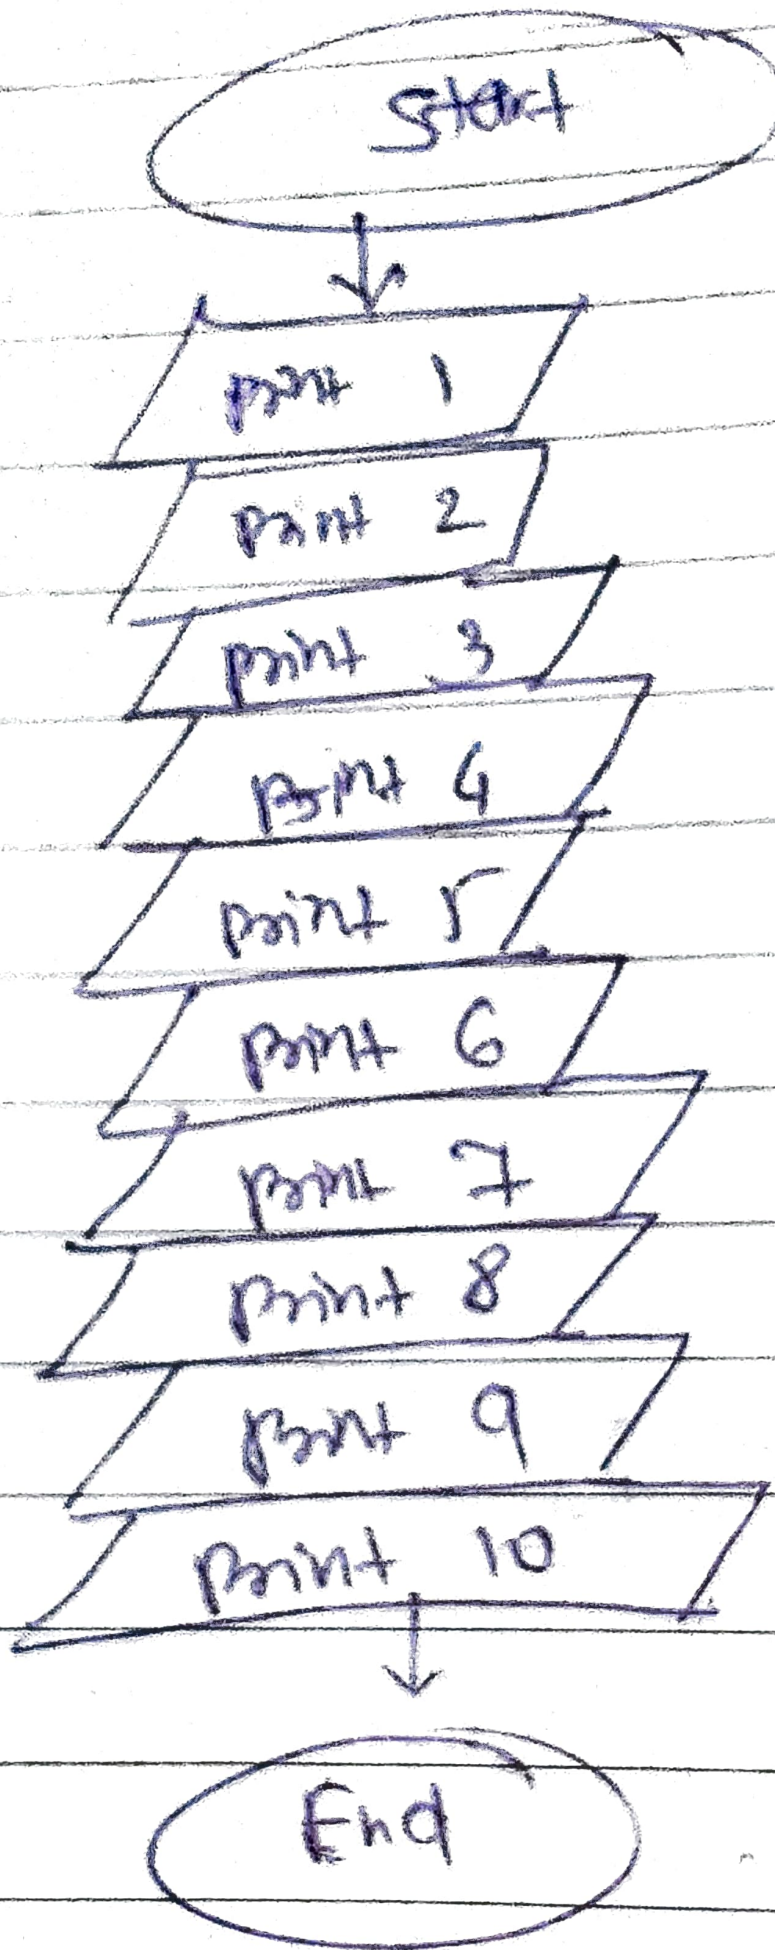 Start
Print 1
Print 2
Print 3
Print 4
Print 5
Print 6
Print 7
Print 8
Print 9
Print 10
End